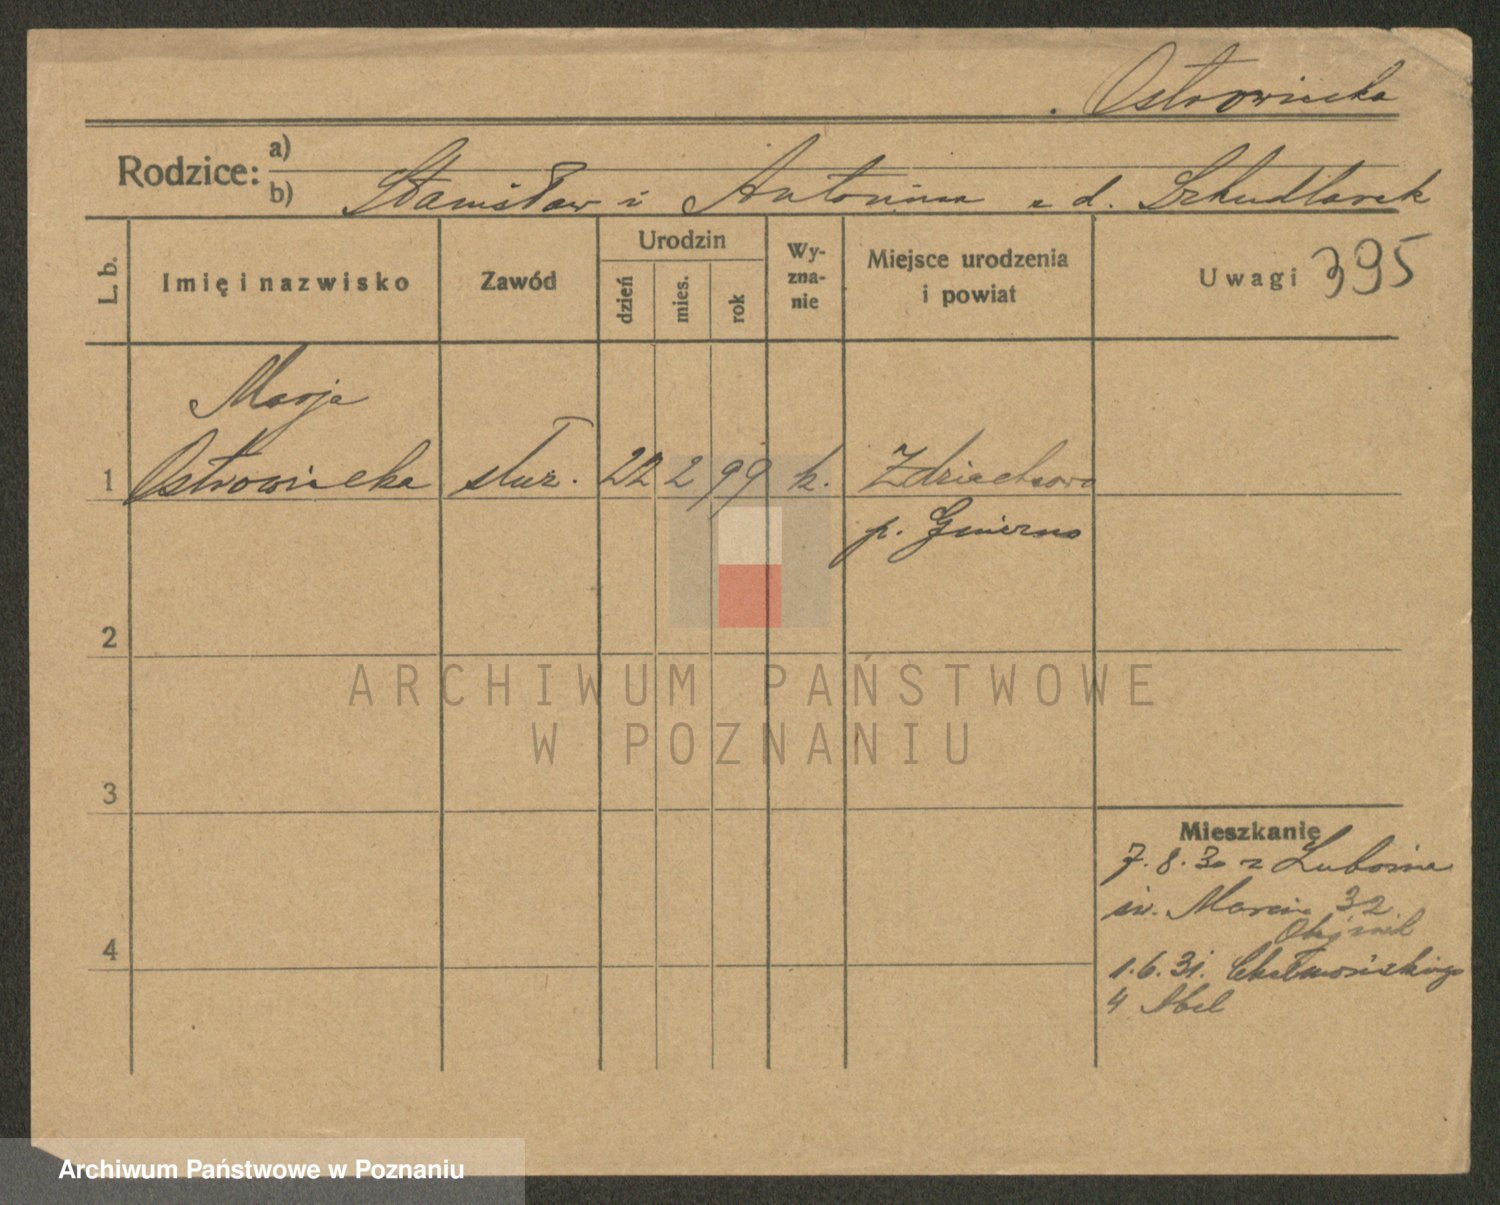 Ostrowicka
Rodzice: a)
b) Stanisław i Antonina z d. Szkudlarek
L. b.
Imię i nazwisko
Zawód
Urodzin
dzień
mies.
rok
Wy-
zna-
nie
Miejsce urodzenia
i powiat
Uwagi 395
Marja
1 Ostrowicka służ. 22 2 99 k. Zdziechowo
p. Gniezno
2
ARCHIWUM PAŃSTWOWE
W POZNANIU
3
4
Mieszkanie
7.8.30 z Lubonia
św. Marcin 32
1.6.31. Chełmońskiego
4 Abel
Archiwum Państwowe w Poznaniu